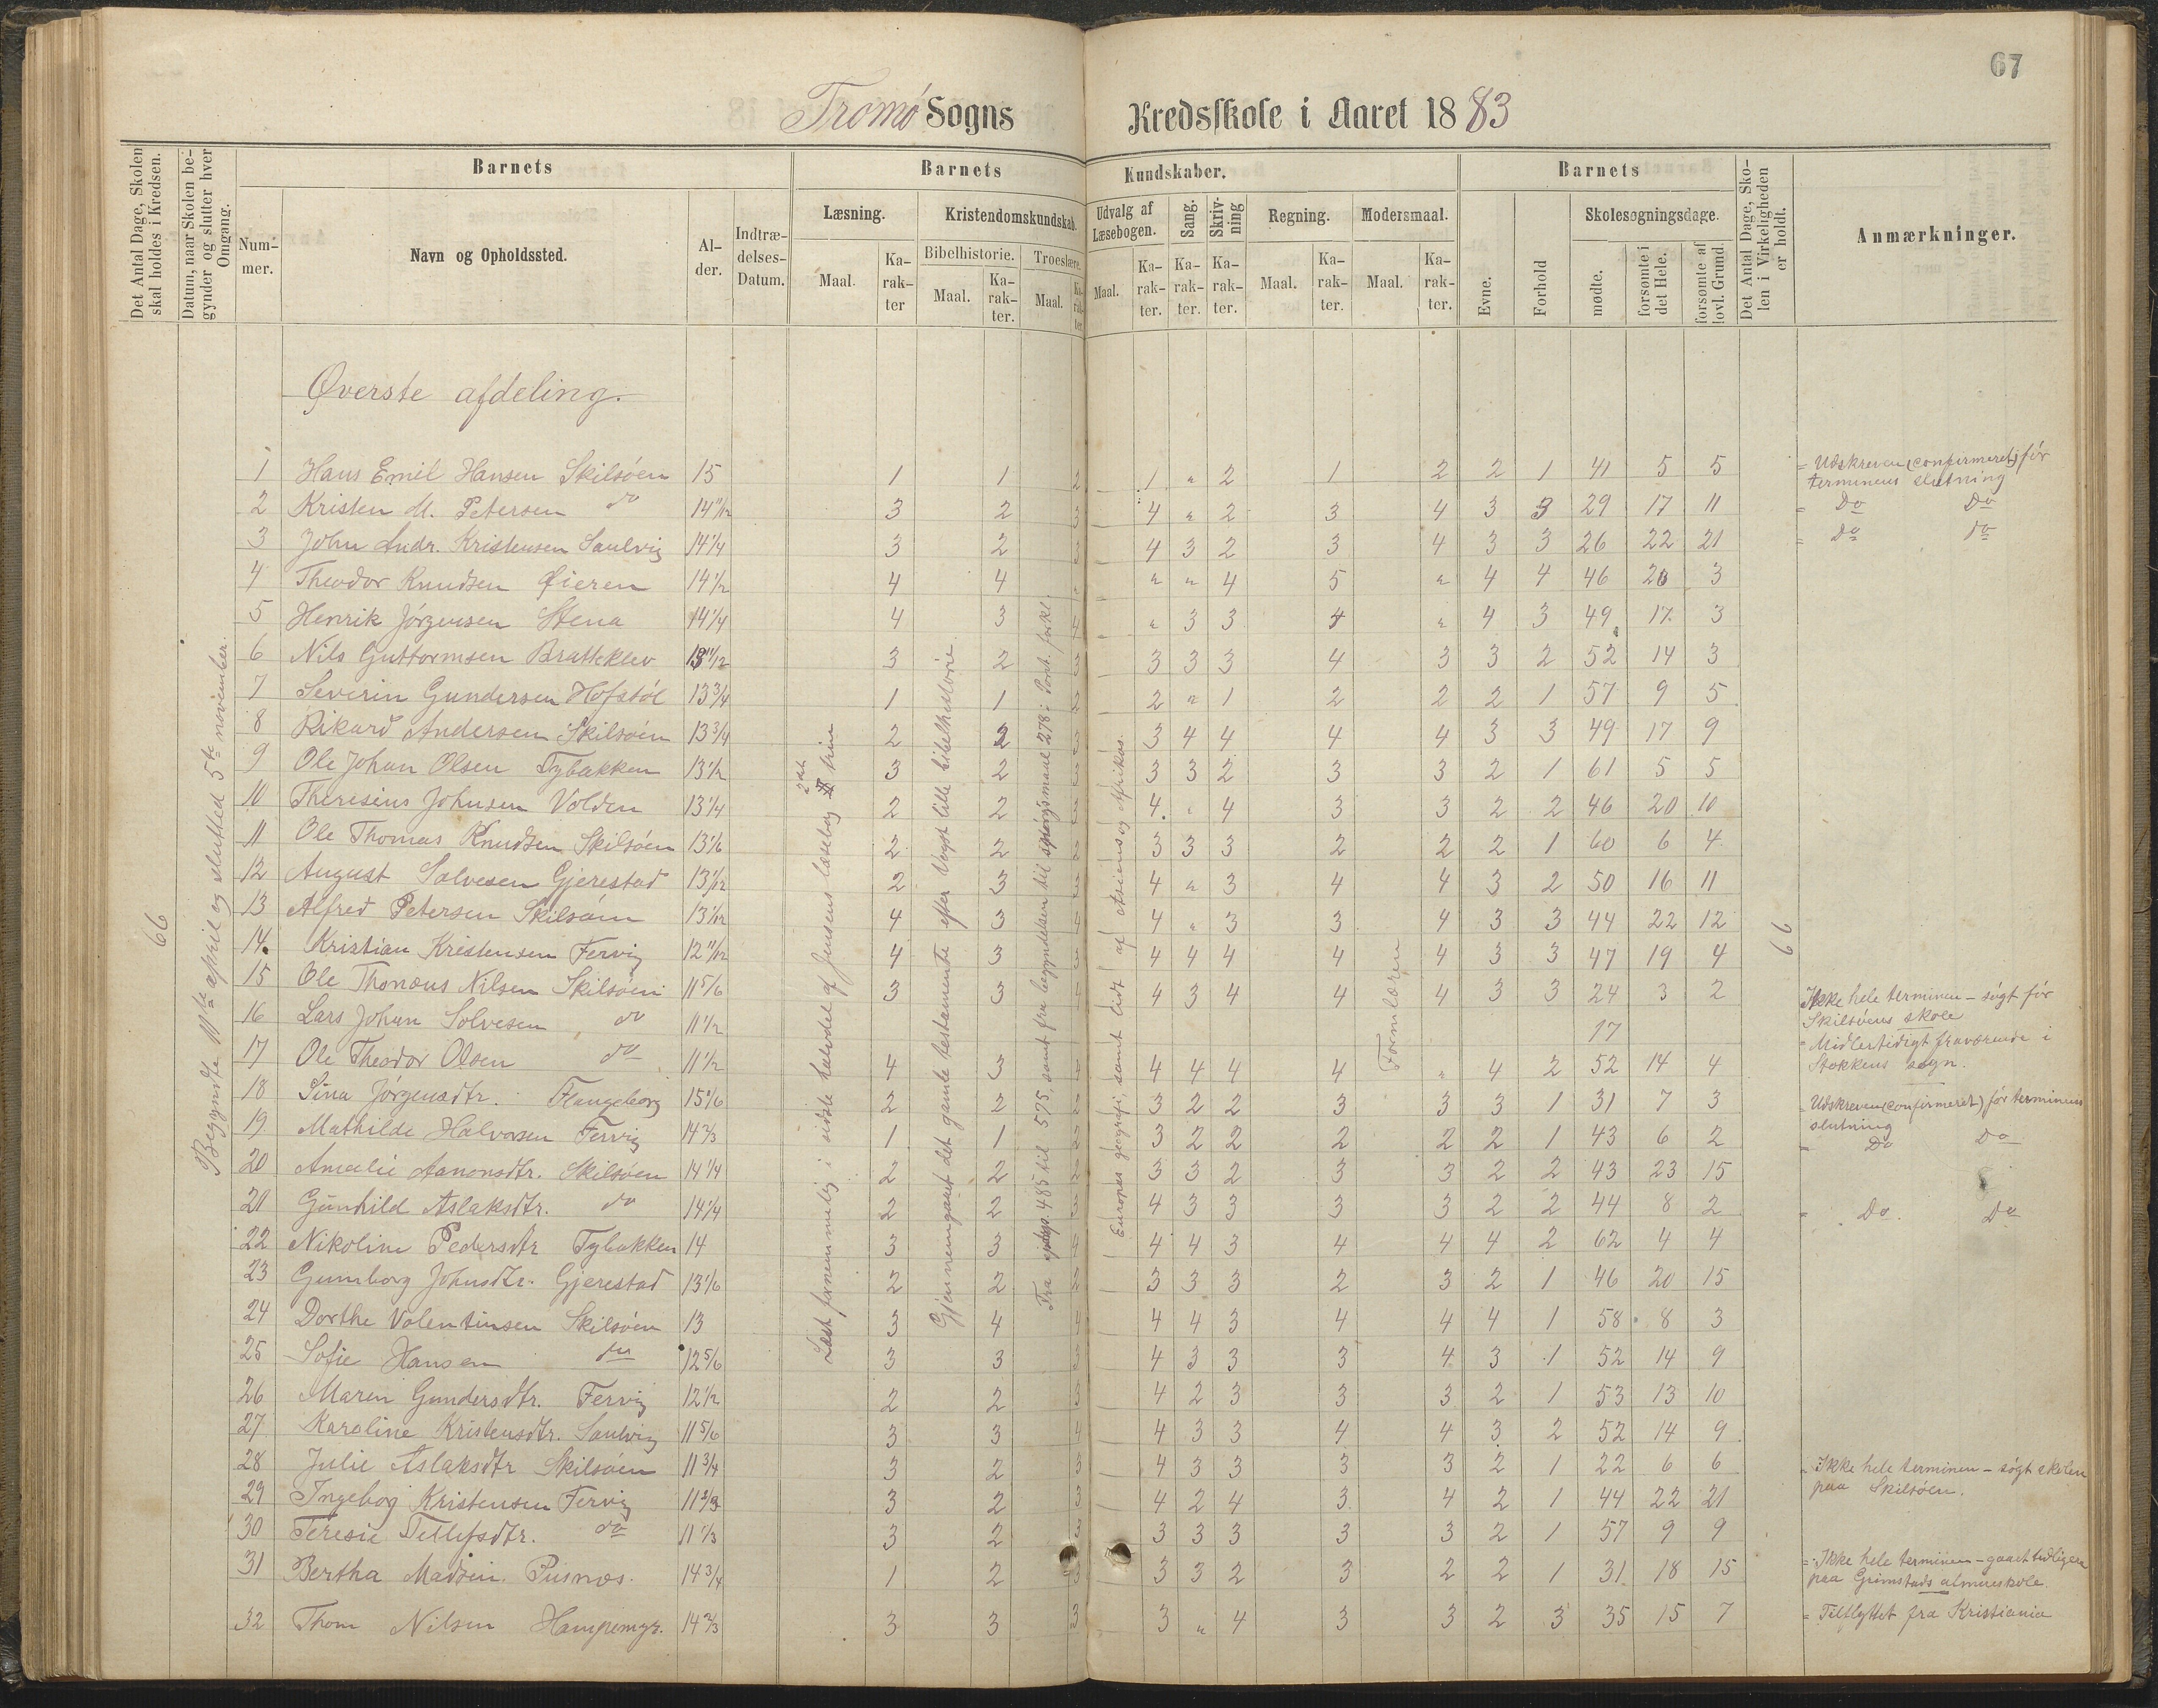 67
Tromö Sogns Kredsskole i Aaret 1883
Det Antal Dage, Skolen skal holdes i Kredsen.
Datum, naar Skolen begynder og slutter hver Omgang.
Barnets
Nummer.
Navn og Opholdssted.
Alder.
Indtrædelses-Datum.
Barnets Kundskaber.
Læsning.
Maal. Karakter
Kristendomskundskab.
Bibelhistorie. Maal. Karakter.
Troeslære. Maal. Karakter.
Udvalg af Læsebogen. Maal. Karakter.
Sang. Karakter.
Skrivning Karakter.
Regning. Maal. Karakter.
Modersmaal. Maal. Karakter.
Barnets
Evne.
Forhold
Skolesøgningsdage.
mødte.
forsømte i det Hele.
forsømte af lovl. Grund.
Det Antal Dage, Skolen i Virkeligheden er holdt.
Anmærkninger.
Øverste afdeling.
66
Begyndte 11te april og slutted 5te november.
Læst fornemmelig i sidste halvdel af Jensens læsebog 2det trin
Gjennemgaaet det gamle testamente efter Vogts lille bibelhistorie
Fra spørgs. 485 til 575, samt fra begyndelsen til spørgsmaal 278 i Pont. forkl.
Europas geografi, samt lidt af Asiens og Afrikas.
Formlæren
66
1 Hans Emil Hansen Skilsöen 15 1 1 2 1 " 2 1 2 2 1 41 5 5 = Udskreven (confirmeret) för terminens slutning
2 Kristen M. Petersen do 14 11/12 3 2 3 4 " 2 3 4 3 3 29 17 11 = Do Do
3 John Andr. Kristensen Saulvig 14 1/4 3 2 3 4 3 2 3 4 3 3 26 22 21 = Do Do
4 Theodor Knudsen Øieren 14 1/2 4 4 " " 4 5 " 4 4 46 20 3
5 Henrik Jörgensen Stena 14 1/4 4 3 4 " 3 3 4 " 4 3 49 17 3
6 Nils Guttormsen Bratteklev 13 11/12 3 2 3 3 3 3 4 3 3 2 52 14 3
7 Severin Gundersen Hofstöl 13 3/4 1 1 2 2 " 1 2 2 2 1 57 9 5
8 Rikard Andersen Skilsöen 13 3/4 2 2 3 3 4 4 4 4 3 3 49 17 9
9 Ole Johan Olsen Tybakken 13 1/2 3 2 3 3 3 2 3 3 2 1 61 5 5
10 Theresius Johnsen Volden 13 1/4 2 2 4 " 4 3 3 2 2 46 20 10
11 Ole Thomas Knudsen Skilsöen 13 1/6 2 2 2 3 3 3 2 2 2 1 60 6 4
12 August Solvesen Gjerestad 13 1/12 2 3 3 4 " 3 4 4 3 2 50 16 11
13 Alfred Petersen Skilsöen 13 1/12 4 3 4 4 " 3 3 4 3 3 44 22 12
14 Kristian Kristensen Fervig 12 11/12 4 3 3 4 4 4 4 4 3 3 47 19 4
15 Ole Thomæus Nilsen Skilsöen 11 5/6 3 3 4 4 3 4 4 4 3 3 24 3 2 Ikke hele terminen – sögt för Skilsöens skole
16 Lars Johan Solvesen do 11 1/2 17 " Midlertidigt fraværende i Stokkens sogn.
17 Ole Theodor Olsen do 11 1/2 4 3 4 4 4 4 4 " 4 2 52 14 4
18 Sina Jörgensdtr. Flangeborg 15 1/6 2 2 2 3 2 2 3 3 3 1 31 7 3 = Udskreven (confirmeret) för terminens slutning
19 Mathilde Halvorsen Fervig 14 2/3 1 1 2 3 2 2 2 2 2 1 43 6 2 = Do Do
20 Amalie Aanonsdtr. Skilsöen 14 1/4 2 2 2 3 3 2 3 3 2 2 43 23 15
21 Gunhild Aslaksdtr. do 14 1/4 2 2 3 4 3 3 3 3 2 2 44 8 2 = Do Do
22 Nikoline Pedersdtr Tybakken 14 3 3 4 4 4 3 4 4 4 2 62 4 4
23 Gunnborg Johnsdtr. Gjerestad 13 1/6 2 2 2 3 3 3 2 3 2 1 46 20 15
24 Dorthe Valentinsen Skilsöen 13 3 4 4 4 4 3 4 4 4 1 58 8 3
25 Sofie Hansen do 12 5/6 3 3 3 4 3 3 3 4 3 1 52 14 9
26 Maren Gundersdtr. Fervig 12 1/2 2 2 3 4 2 3 3 3 2 1 53 13 10
27 Karoline Kristensdtr. Saulvig 11 5/6 3 3 4 4 3 3 4 4 3 2 52 14 9
28 Julie Aslaksdtr Skilsöen 11 3/4 3 2 3 4 3 3 3 3 2 1 22 6 6 = Ikke hele terminen – sögt skolen paa Skilsöen.
29 Ingebog Kristensen Fervig 11 2/3 3 2 3 4 2 4 3 4 2 1 44 22 21
30 Teresie Tellefsdtr. do 11 2/3 3 2 3 3 3 3 3 3 2 1 57 9 9
31 Bertha Madsen Pusnæs. 14 3/4 1 2 3 3 3 2 3 2 2 1 31 18 15 = Ikke hele terminen – gaaet tidligere paa Grimstads almueskole
32 Thom Nilsen Hampemyr. 14 2/3 3 3 3 3 " 4 3 3 2 3 35 15 7 = Tilflyttet fra Kristiania